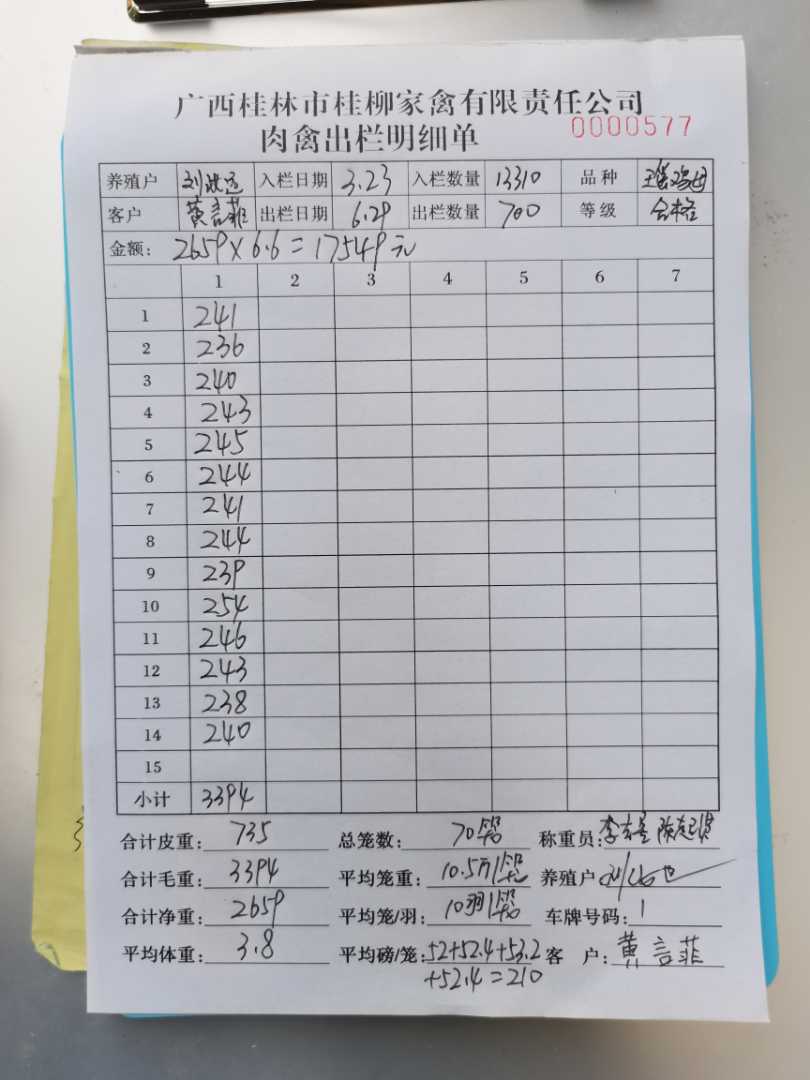 广西桂林市桂柳家禽有限责任公司
肉禽出栏明细单 0000577
养殖户 入栏日期 3.23 入栏数量 13310 品种
客户 黄言菲 出栏日期 6.29 出栏数量 700 等级 合格
金额: 2659×6.6=17549元
1 2 3 4 5 6 7
1 241
2 236
3 240
4 243
5 245
6 244
7 241
8 244
9 239
10 254
11 246
12 243
13 238
14 240
15
小计 3394
合计皮重: 735 总笼数: 70笼 称重员:
合计毛重: 3394 平均笼重: 10.5 养殖户
合计净重: 2659 平均笼/羽: 10羽/笼 车牌号码: 1
平均体重: 3.8 平均磅/笼: 52+52.4+53.2 客 户: 黄言菲
+52.4=210